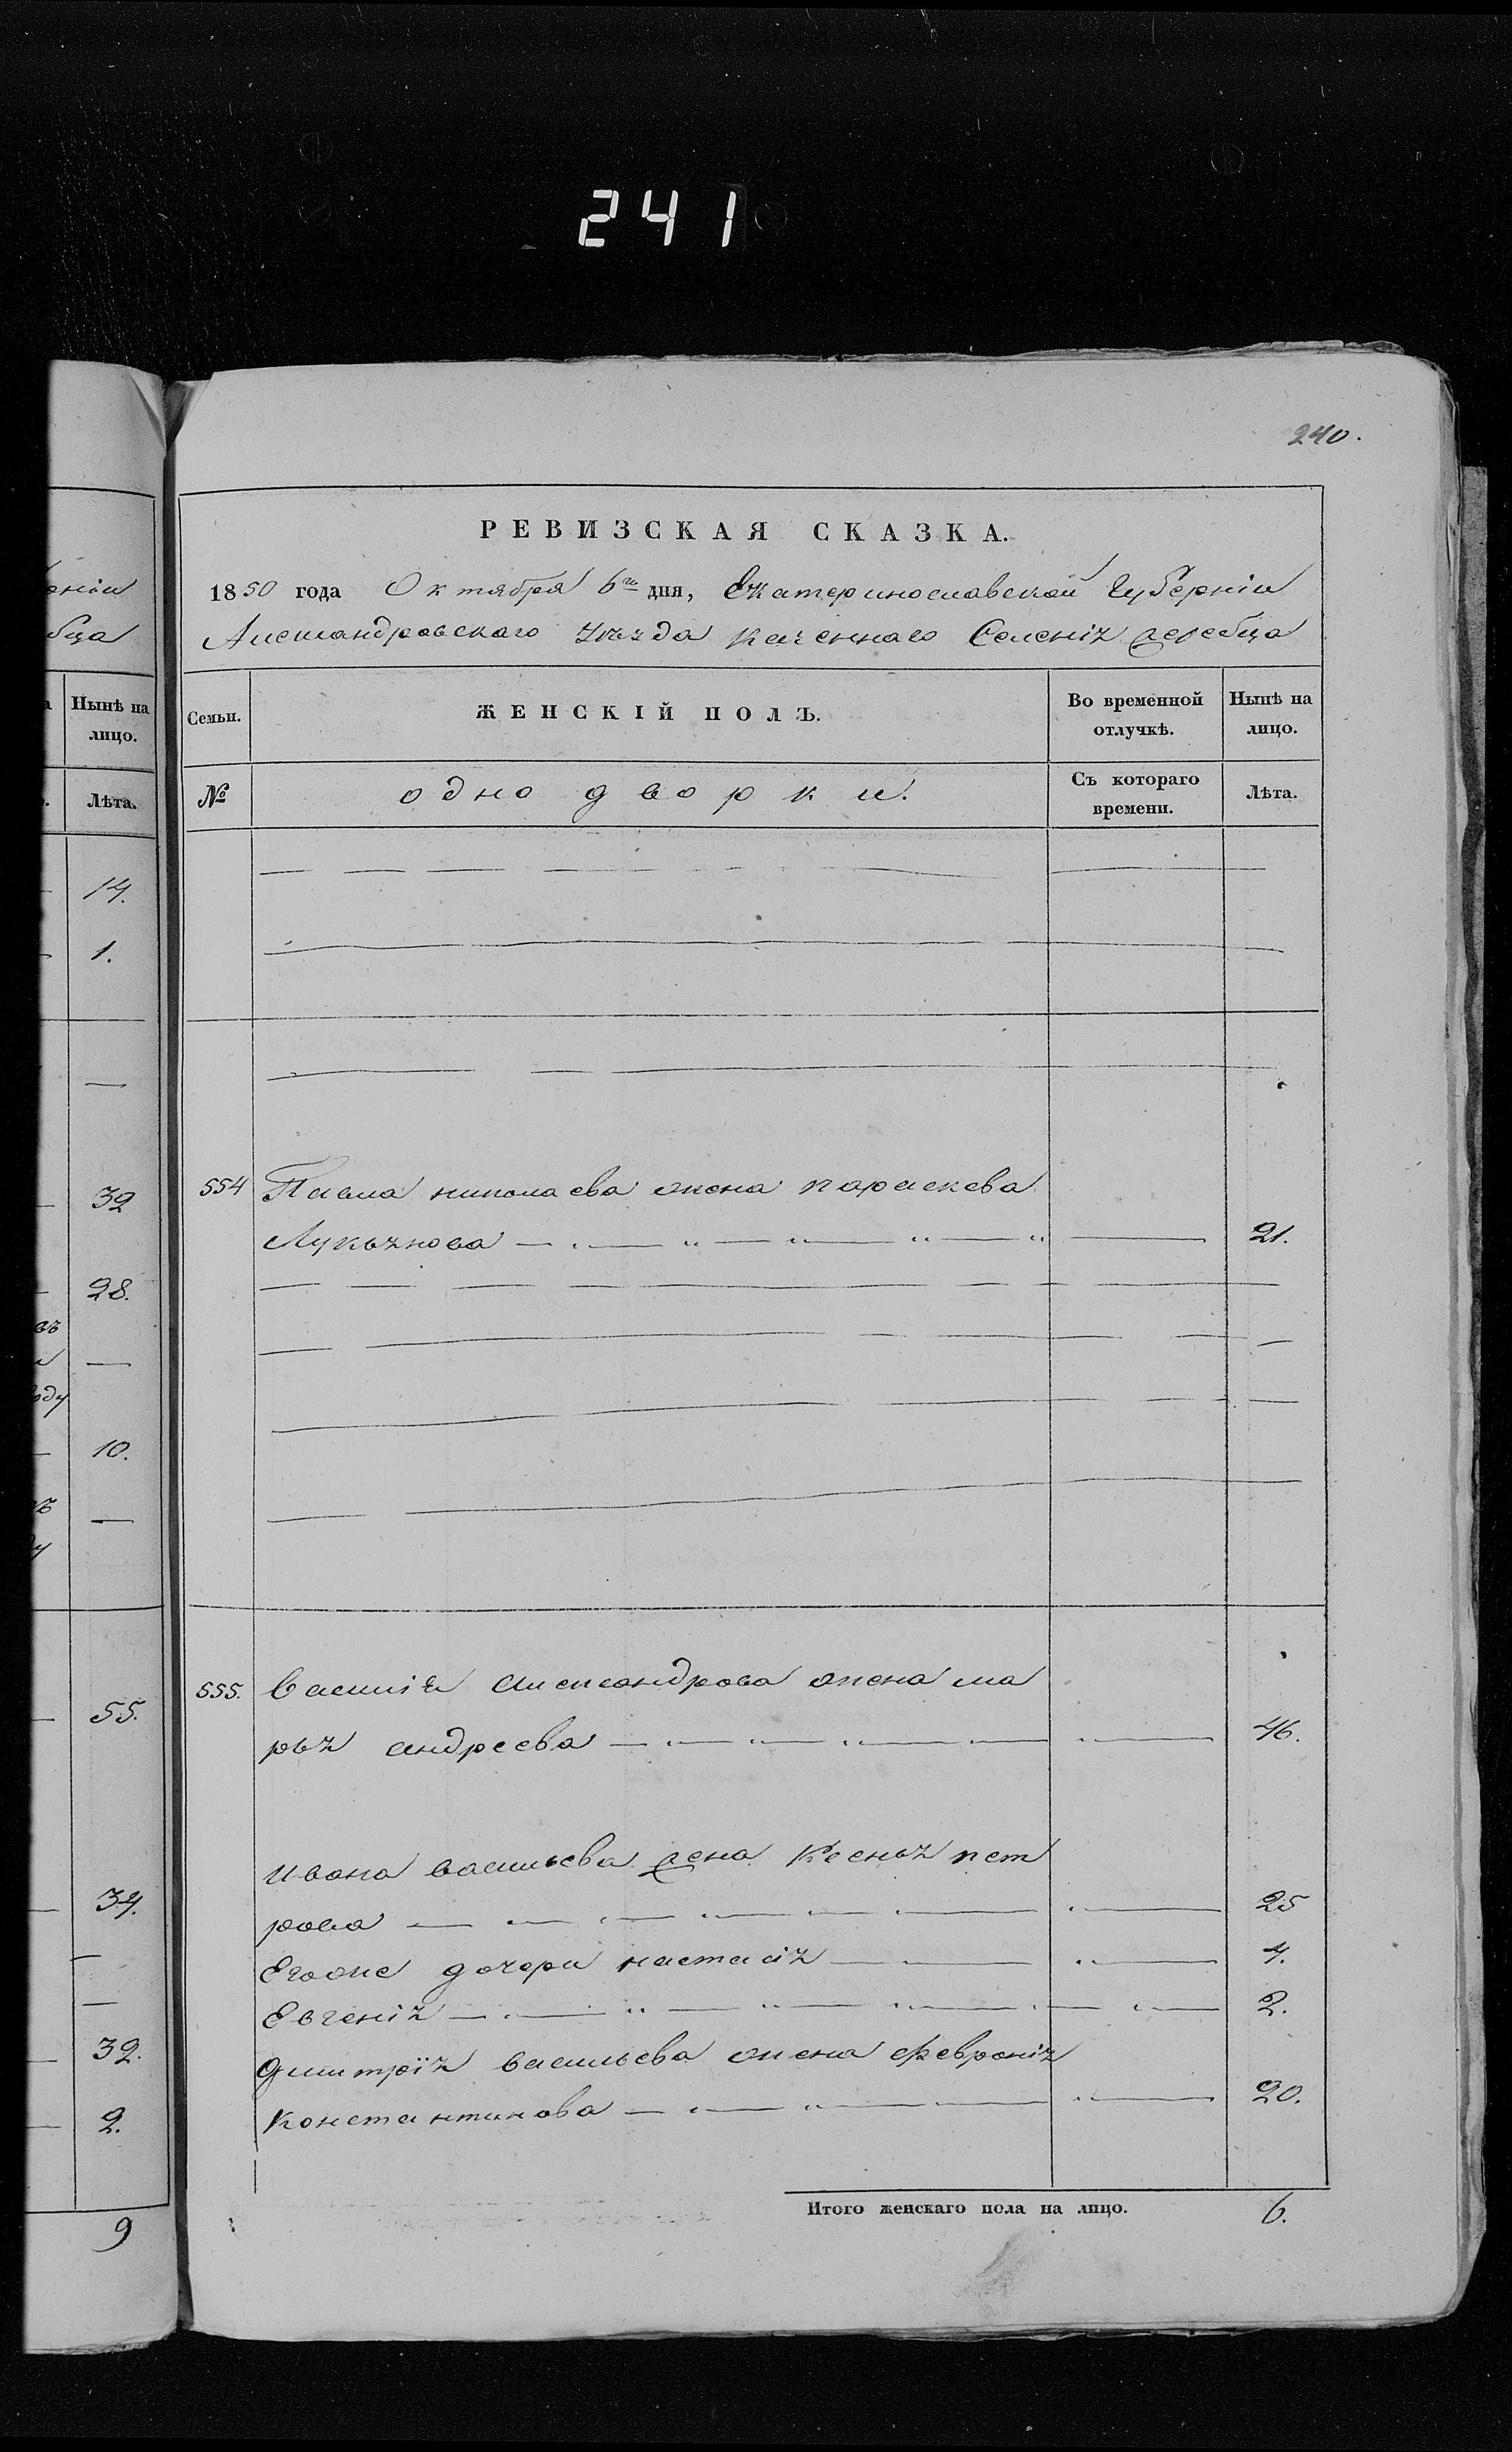 241
240.
РЕВИЗСКАЯ СКАЗКА.
1850 года Октября 6го дня, Екатеринославской Губерніи
Александровскаго Уѣзда Казеннаго Селенія Жеребца
Семьи. ЖЕНСКІЙ ПОЛЪ. Во временной отлучкѣ. Нынѣ на лицо.
№ однодворки. Съ котораго времени. Лѣта.
554 Павла николаева жена параскева
Лукьянова 21.
555. Василія Александрова жена ма
рья андреева 46.
Ивана васильева жена Ксенья пет
рова 25
Егоже дочери настасія 4.
Евгенія 2.
Дмитрія васильева жена февронія
Константинова 20.
Итого женскаго пола на лицо. 6.
ерніи
бца
Нынѣ на
лицо.
Лѣта.
14.
1.
32
28.
оду
10.
55.
34.
32.
2.
9